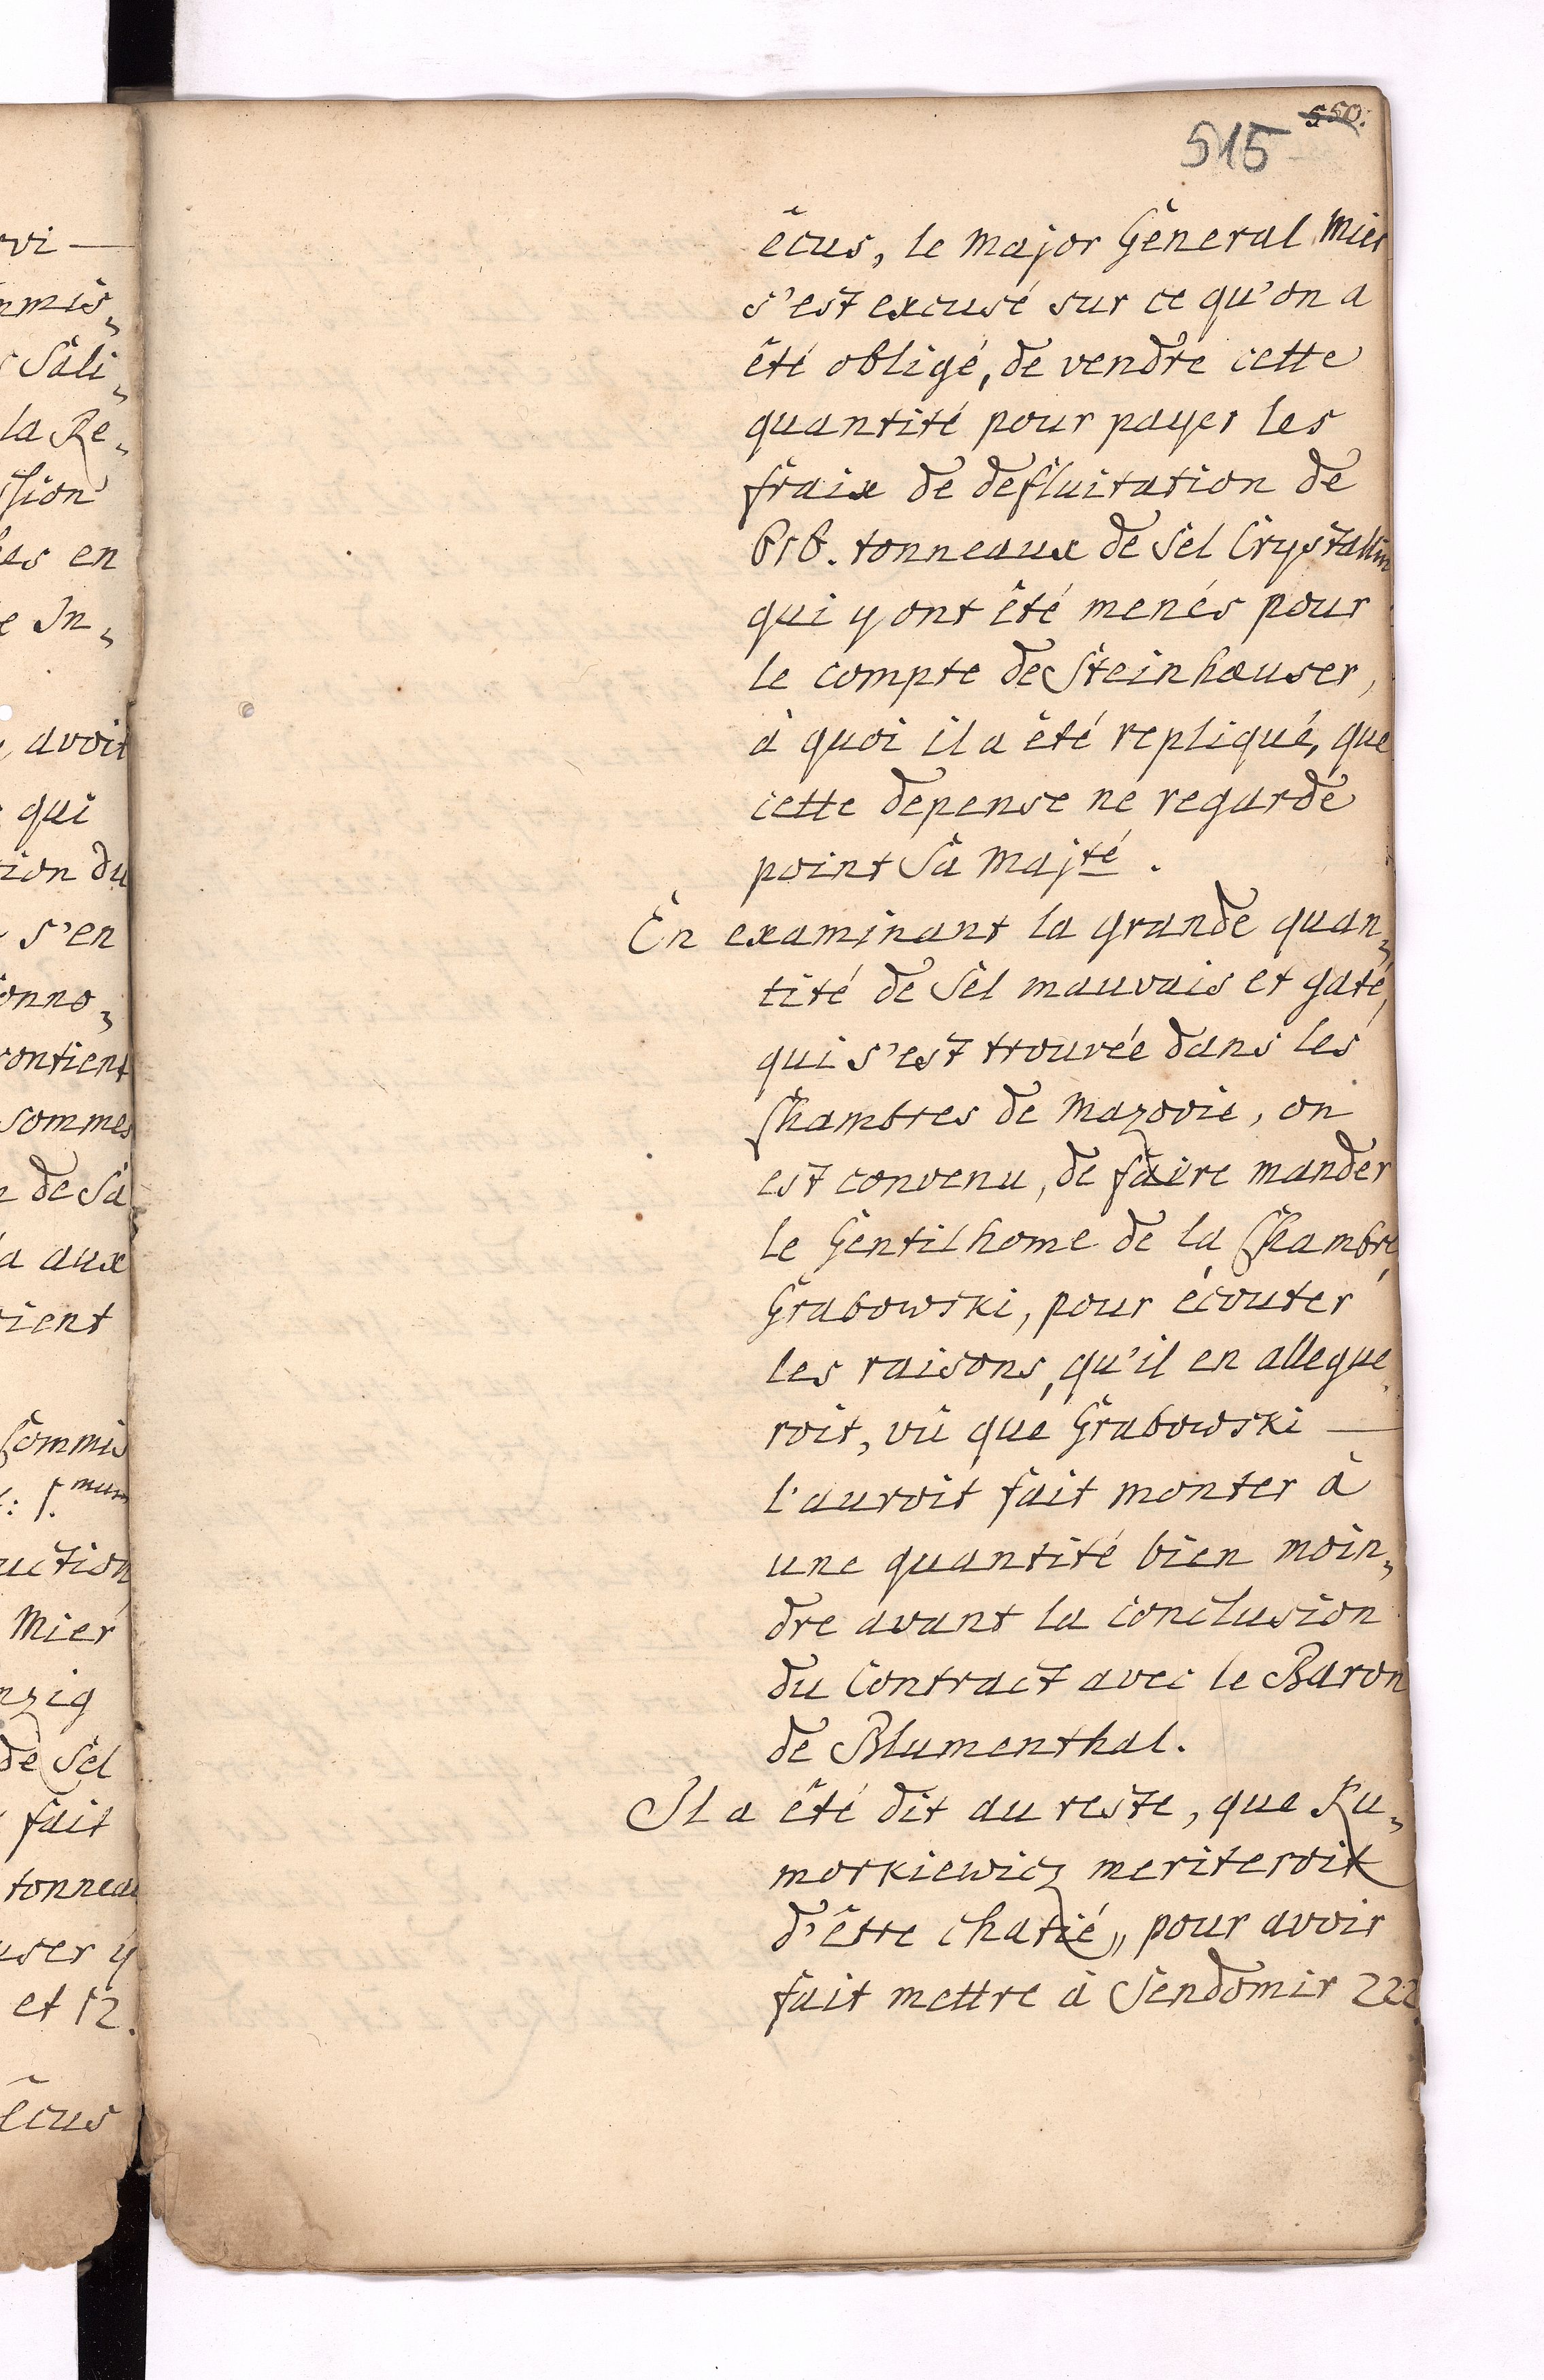 rvi —
nmis„
s Sali„
la Re„
ssion
les en
e In„
avoit
qui
tion du
s'en
onno„
contient
sommes
n de Sa
la aux
oient
Commis
mum
uction
Mier
nzig
de Sel
fait
tonneau
user y
et 12.
êcus
550.
515
êcus, le Major Gèneral Mier
s'est excusé sur ce qu'on a
êté obligé, de vendre cette
quantité pour payer les
fraix de defluitation de
tonneaux de Sel Crystallin
qui y ont êté menés pour
le compte de Steinhæuser,
à quoi il a êté repliqué, que
cette depense ne regarde
point Sa Majté.
En examinant la grande quan„
tité de Sel mauvais et gaté,
qui s'est trouvée dans les
Chambres de Mazovie, on
est convenu, de faire mander
le Gentilhome de la Chambre
Grabowski, pour écouter
les raisons, qu'il en allegue„
roit, vû que Grabowski —
l'auroit fait monter à
une quantité bien moin„
dre avant la conclusion
du Contract avec le Baron
de Blumenthal.
Il a êté dit au reste, que Ru„
morkiewicz meriteroit
d'être chatié, pour avoir
fait mettre à Sendomir 222.